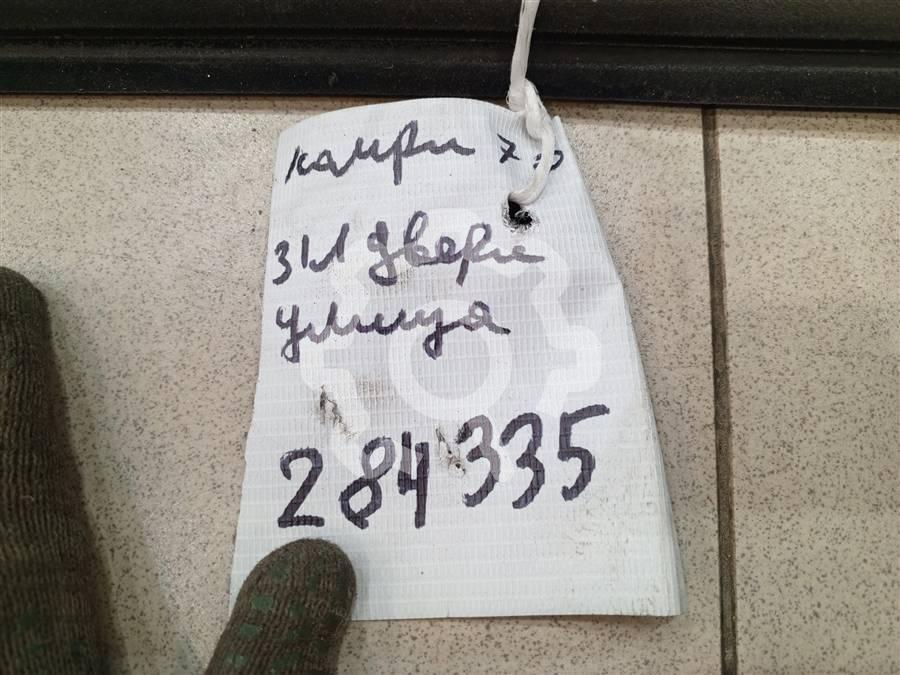 камри 70
з/л двери
улица
284335